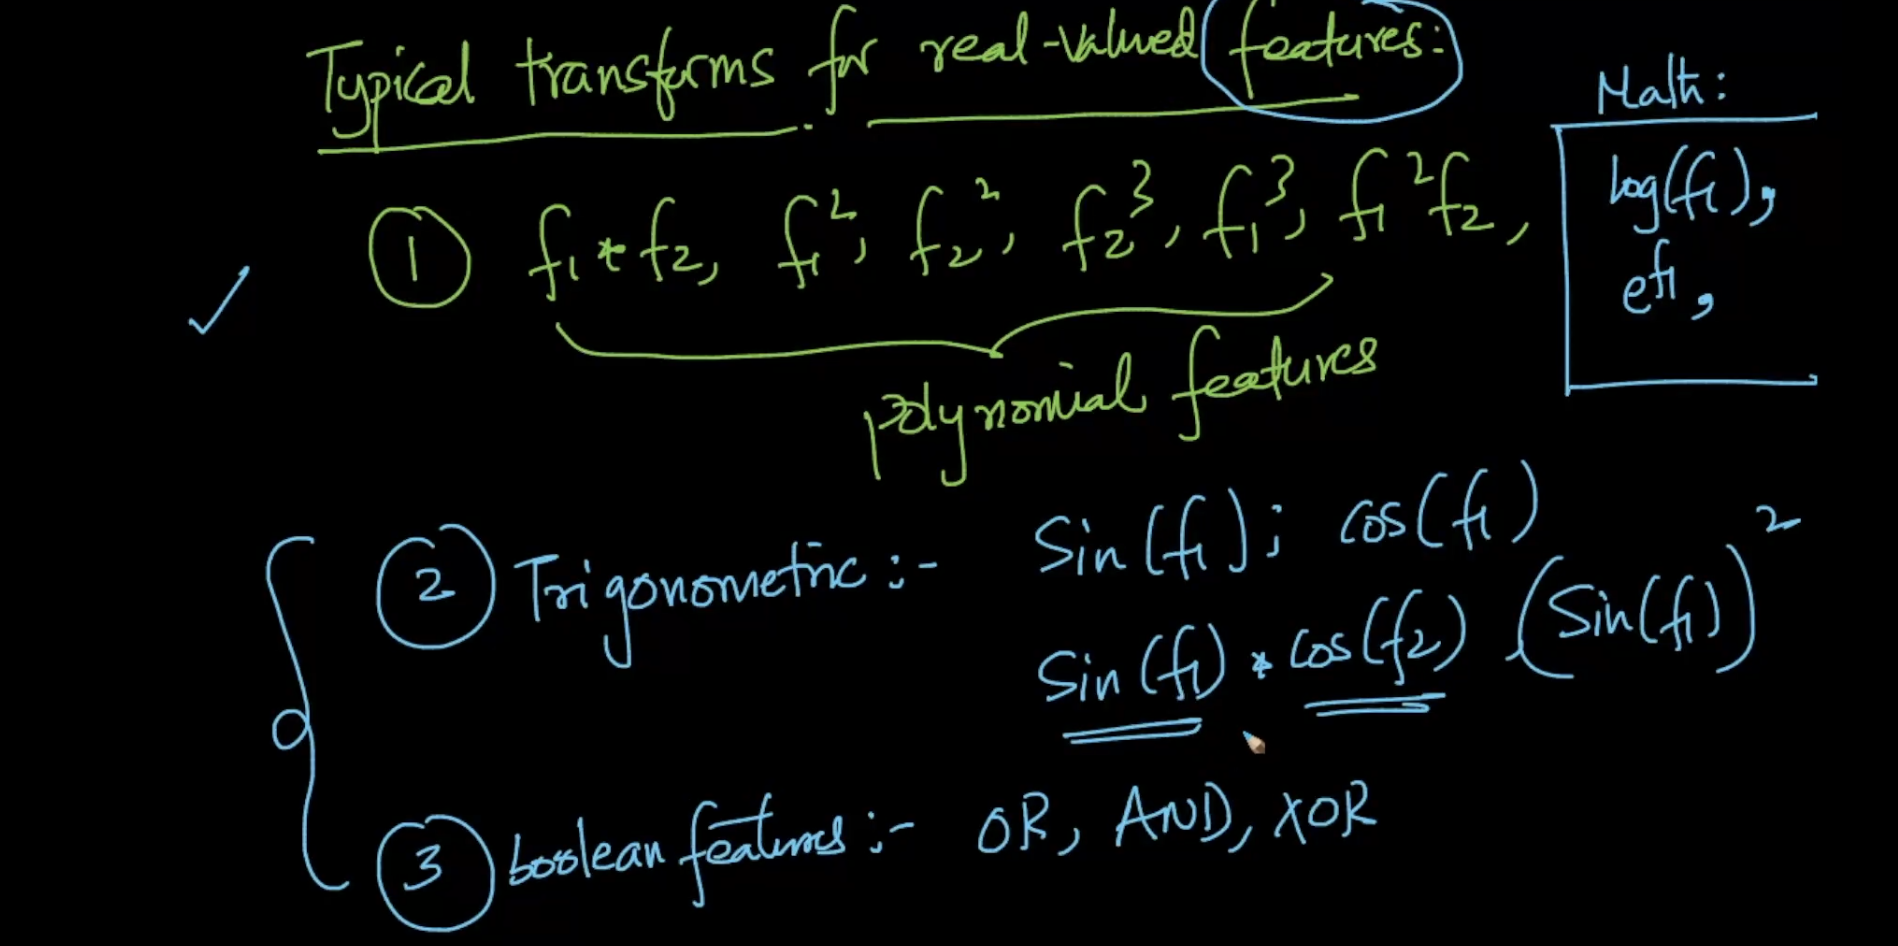 Typical transforms for real-valued features:
① f₁ * f₂, f₁², f₂², f₂³, f₁³, f₁²f₂,
polynomial features
Math:
log(f₁),
e^f₁,
② Trigonometric :- Sin(f₁); cos(f₁)
Sin(f₁) * cos(f₂) (Sin(f₁))²
③ boolean features :- OR, AND, XOR